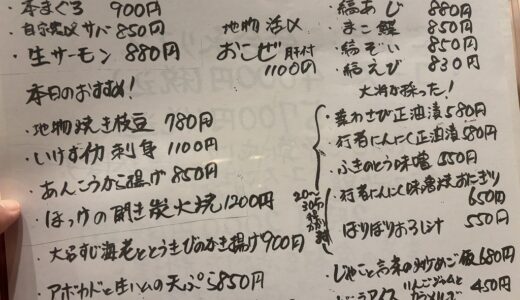 ・本まぐろ 900円
・自家〆サバ 850円
・生サーモン 880円
地物 活〆
おこぜ 肝付
1100円
・縞あじ 880円
・まこ鰈 850円
・縞ぞい 850円
・縞えび 830円
本日のおすすめ!
・地物焼き枝豆 780円
・いけすイカ刺身 1100円
・あんこうから揚げ 850円
・ほっけの開き炭火焼 1200円
・大名すじ海老ととうきびのかき揚げ 900円
・アボカドと生ハムの天ぷら 850円
大将が採った!
・葉わさび正油漬 580円
・行者にんにく正油漬 580円
・ふきのとう味噌 550円
・行者にんにく味噌焼おにぎり
650円
・ばりばりおろし汁 550円
・じゃこと高菜の炒めご飯 680円
りんごジャムと
450円
20〜
30分